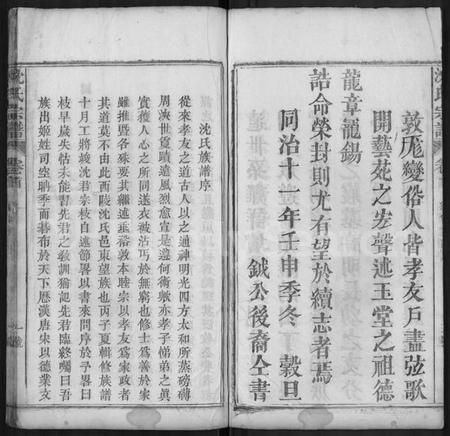 沈氏宗譜
敦厖變俗人皆孝友戶盡弦歌
開藝苑之先聲述玉堂之祖德
龍章寵錫
誥命榮封則尤有望於續志者焉
同治十一年壬申季冬 穀旦
鉞公後裔仝書
沈氏族譜序
從來孝友之道古人以之通神明光四方太和所蒸磅礴
周浹世寶蹟遺風烈愈遠何歟亦孝子悌弟之真
實獲人心之所同遂衣被沾丐於無窮也修士為善於家
雖推暨各殊要其繼述垂裕敦本睦宗以孝友為家政者
其道莫不由此西陵沈氏邑東望族也丙子夏輯修族譜
十月工將竣沈君宗枝自述節畧以書來問序於予畧曰
枝早歲失怙未能習先君之教訓猶記先君臨終囑曰吾
族出姬姓司空聃季而碁布於天下歷漢唐宋以德業文
沈氏宗譜
卷首